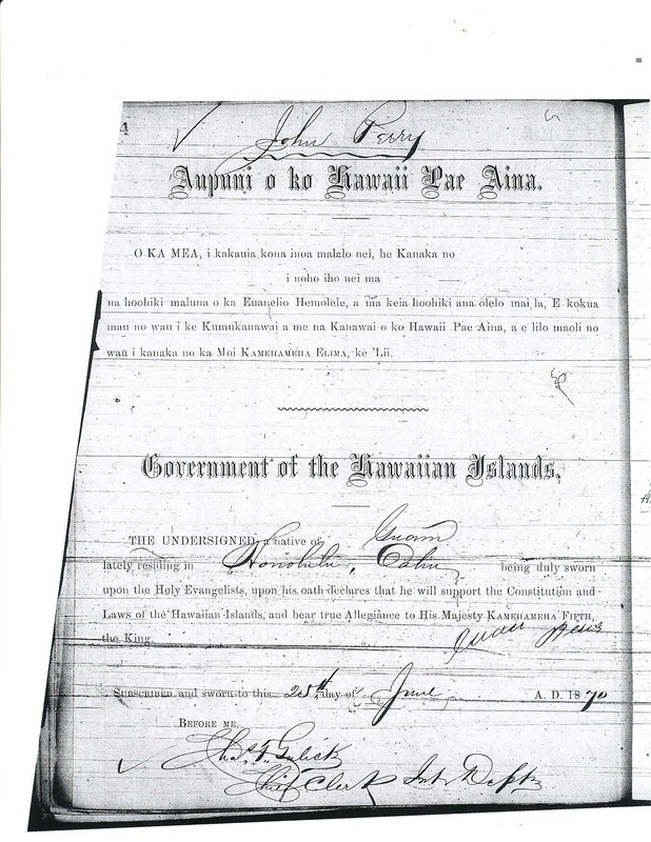 John Perry
Aupuni o ko Hawaii Pae Aina.
O KA MEA, i kakauia kona inoa malalo nei, he Kanaka no
i noho iho nei ma
na hoohiki maluna o ka Euanelio Hemolele, a ma keia hoohiki ana olelo mai la, E kokua
mau no wau i ke Kumukanawai a me na Kanawai o ko Hawaii Pae Aina, a e lilo maoli no
wau i kanaka no ka Moi KAMEHAMEHA ELIMA, ke 'Lii.
Government of the Hawaiian Islands,
THE UNDERSIGNED, a native of Guam
lately residing in Honolulu, Oahu being duly sworn
upon the Holy Evangelists, upon his oath declares that he will support the Constitution and
Laws of the Hawaiian Islands, and bear true Allegiance to His Majesty KAMEHAMEHA FIFTH,
the King.
SUBSCRIBED and sworn to this 25th day of June A. D. 1870
BEFORE ME,
Chas. T. Gulick
Chief Clerk Int Dept